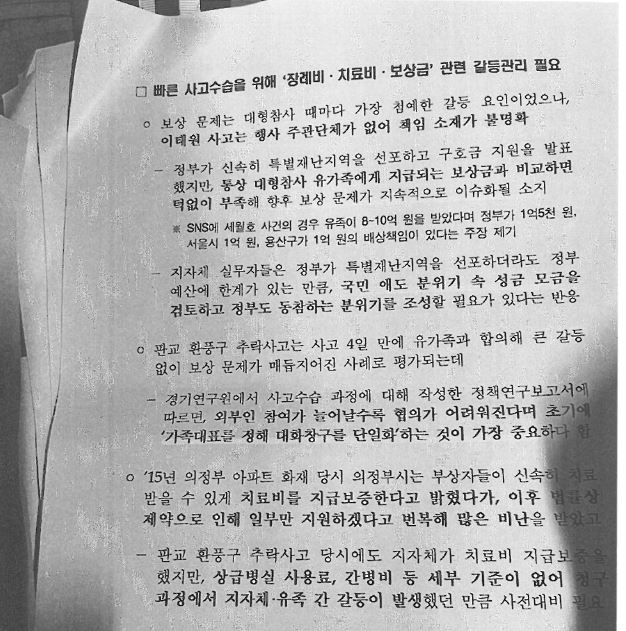 □ 빠른 사고수습을 위해 '장례비·치료비·보상금' 관련 갈등관리 필요
○ 보상 문제는 대형참사 때마다 가장 첨예한 갈등 요인이었으나,
이태원 사고는 행사 주관단체가 없어 책임 소재가 불명확
- 정부가 신속히 특별재난지역을 선포하고 구호금 지원을 발표
했지만, 통상 대형참사 유가족에게 지급되는 보상금과 비교하면
턱없이 부족해 향후 보상 문제가 지속적으로 이슈화될 소지
※ SNS에 세월호 사건의 경우 유족이 8~10억 원을 받았다며 정부가 1억5천 원,
서울시 1억 원, 용산구가 1억 원의 배상책임이 있다는 주장 제기
- 지자체 실무자들은 정부가 특별재난지역을 선포하더라도 정부
예산에 한계가 있는 만큼, 국민 애도 분위기 속 성금 모금을
검토하고 정부도 동참하는 분위기를 조성할 필요가 있다는 반응
○ 판교 환풍구 추락사고는 사고 4일 만에 유가족과 합의해 큰 갈등
없이 보상 문제가 매듭지어진 사례로 평가되는데
- 경기연구원에서 사고수습 과정에 대해 작성한 정책연구보고서에
따르면, 외부인 참여가 늘어날수록 협의가 어려워진다며 초기에
'가족대표를 정해 대화창구를 단일화'하는 것이 가장 중요하다 함
○ '15년 의정부 아파트 화재 당시 의정부시는 부상자들이 신속히 치료
받을 수 있게 치료비를 지급보증한다고 밝혔다가, 이후 법률상
제약으로 인해 일부만 지원하겠다고 번복해 많은 비난을 받았고
- 판교 환풍구 추락사고 당시에도 지자체가 치료비 지급보증을
했지만, 상급병실 사용료, 간병비 등 세부 기준이 없어 청구
과정에서 지자체·유족 간 갈등이 발생했던 만큼 사전대비 필요